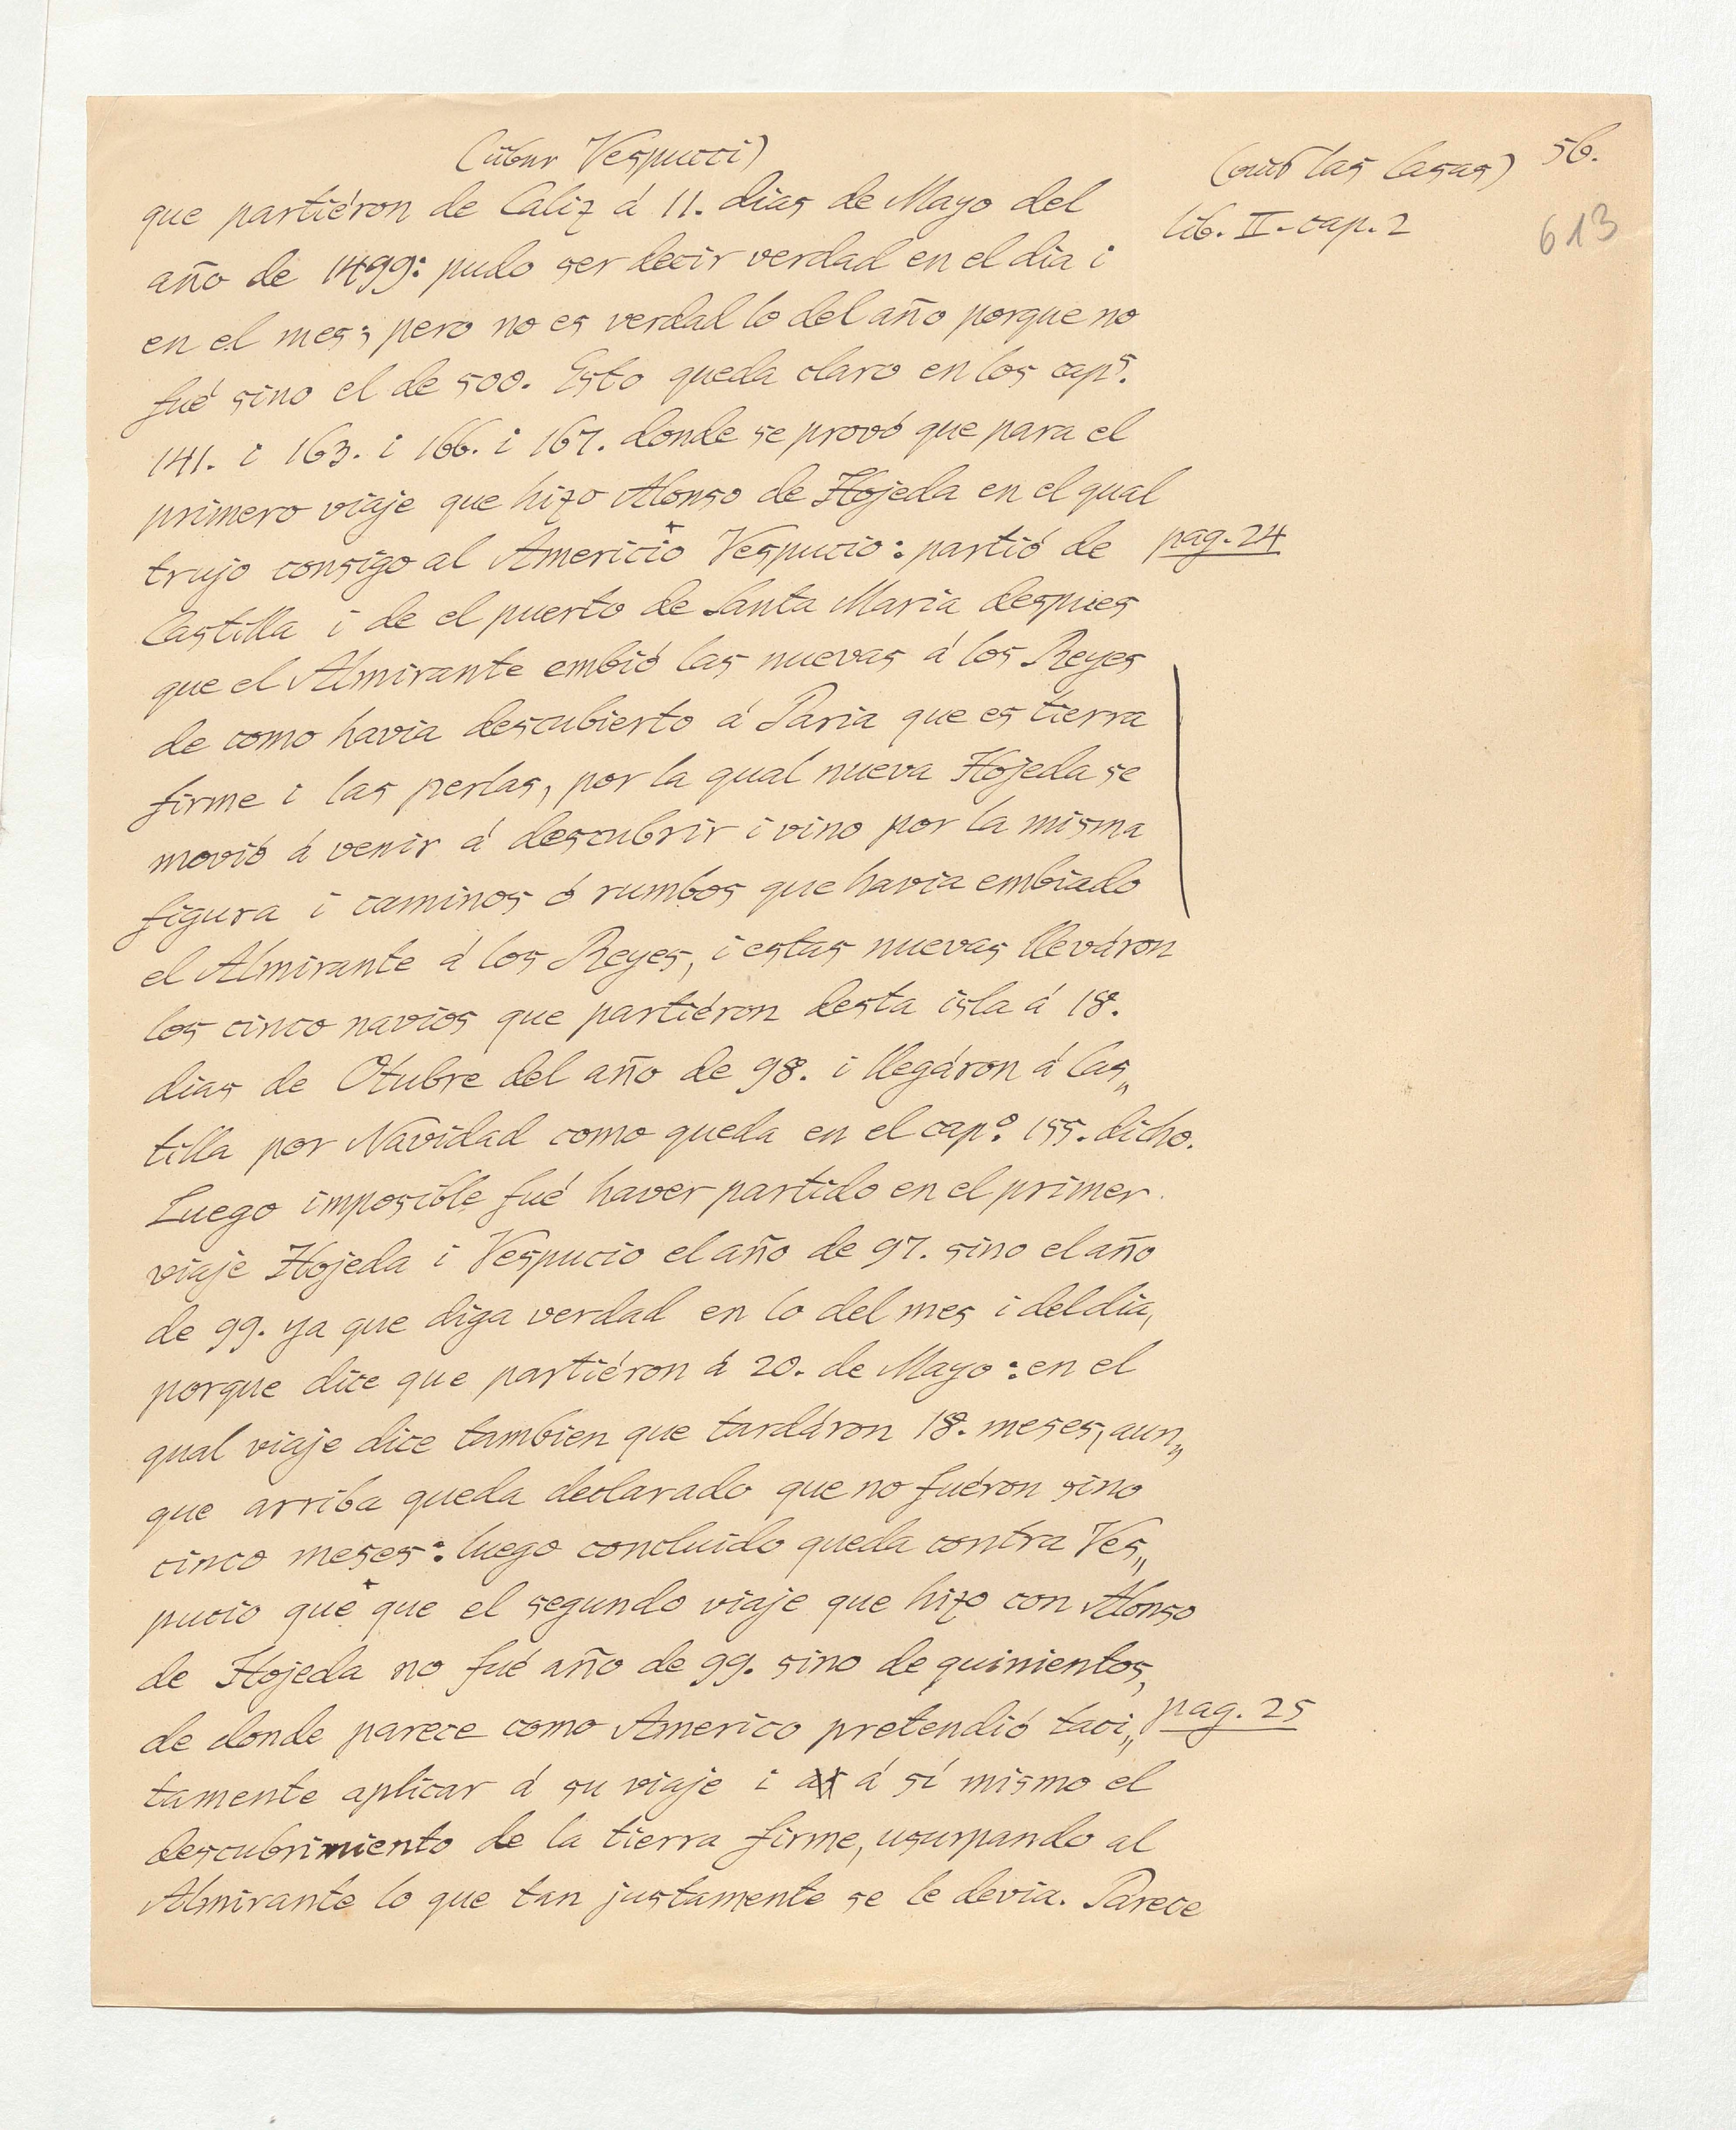 (über Vespucci)
(aus las Casas) 56.
lib. II - cap. 2
613
que partiéron de Caliz á 11. dias de Mayo del
año de 1499: pudo ser decir verdad en el dia i
en el mes; pero no es verdad lo del año porque no
fué sino el de 500. Esto queda claro en los capˢ.
141. i 163. i 166. i 167. donde se provó que para el
primero viaje que hizo Alonso de Hojeda en el qual
trujo consigo al Americio⁺ Vespucio: partió de pag. 24
Castilla i de el puerto de Santa Maria despues
que el Almirante embió las nuevas á los Reyes
de como havia descubierto á Paria que es tierra
firme i las perlas, por la qual nueva Hojeda se
movió á venir á descubrir i vino por la misma
figura i caminos ó rumbos que havia embiado
el Almirante á los Reyes, i estas nuevas lleváron
los cinco navios que partiéron desta isla á 18.
dias de Otubre del año de 98. i llegáron á Cas„
tilla por Navidad como queda en el capº. 155. dicho.
Luego imposible fué haver partido en el primer
viaje Hojeda i Vespucio el año de 97. sino el año
de 99. ya que diga verdad en lo del mes i del dia,
porque dice que partiéron á 20. de Mayo: en el
qual viaje dice tambien que tardáron 18. meses, aun„
que arriba queda declarado que no fuéron sino
cinco meses: luego concluido queda contra Ves„
pucio que⁺ que el segundo viaje que hizo con Alonso
de Hojeda no fué año de 99. sino de quinientos,
de donde parece como Americo pretendió taci„ pag. 25
tamente aplicar á su viaje i á sí mismo el
descubrimiento de la tierra firme, usurpando al
Almirante lo que tan justamente se le devia. Parece